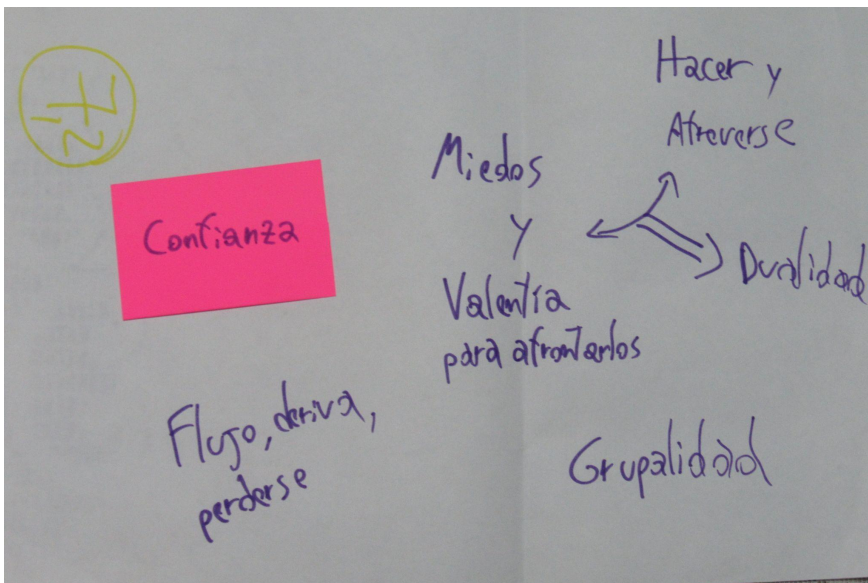 Confianza
Miedos
y
Valentía
para afrontarlos
Hacer y
Atreverse
Dualidad
Flujo, deriva,
perderse
Grupalidad